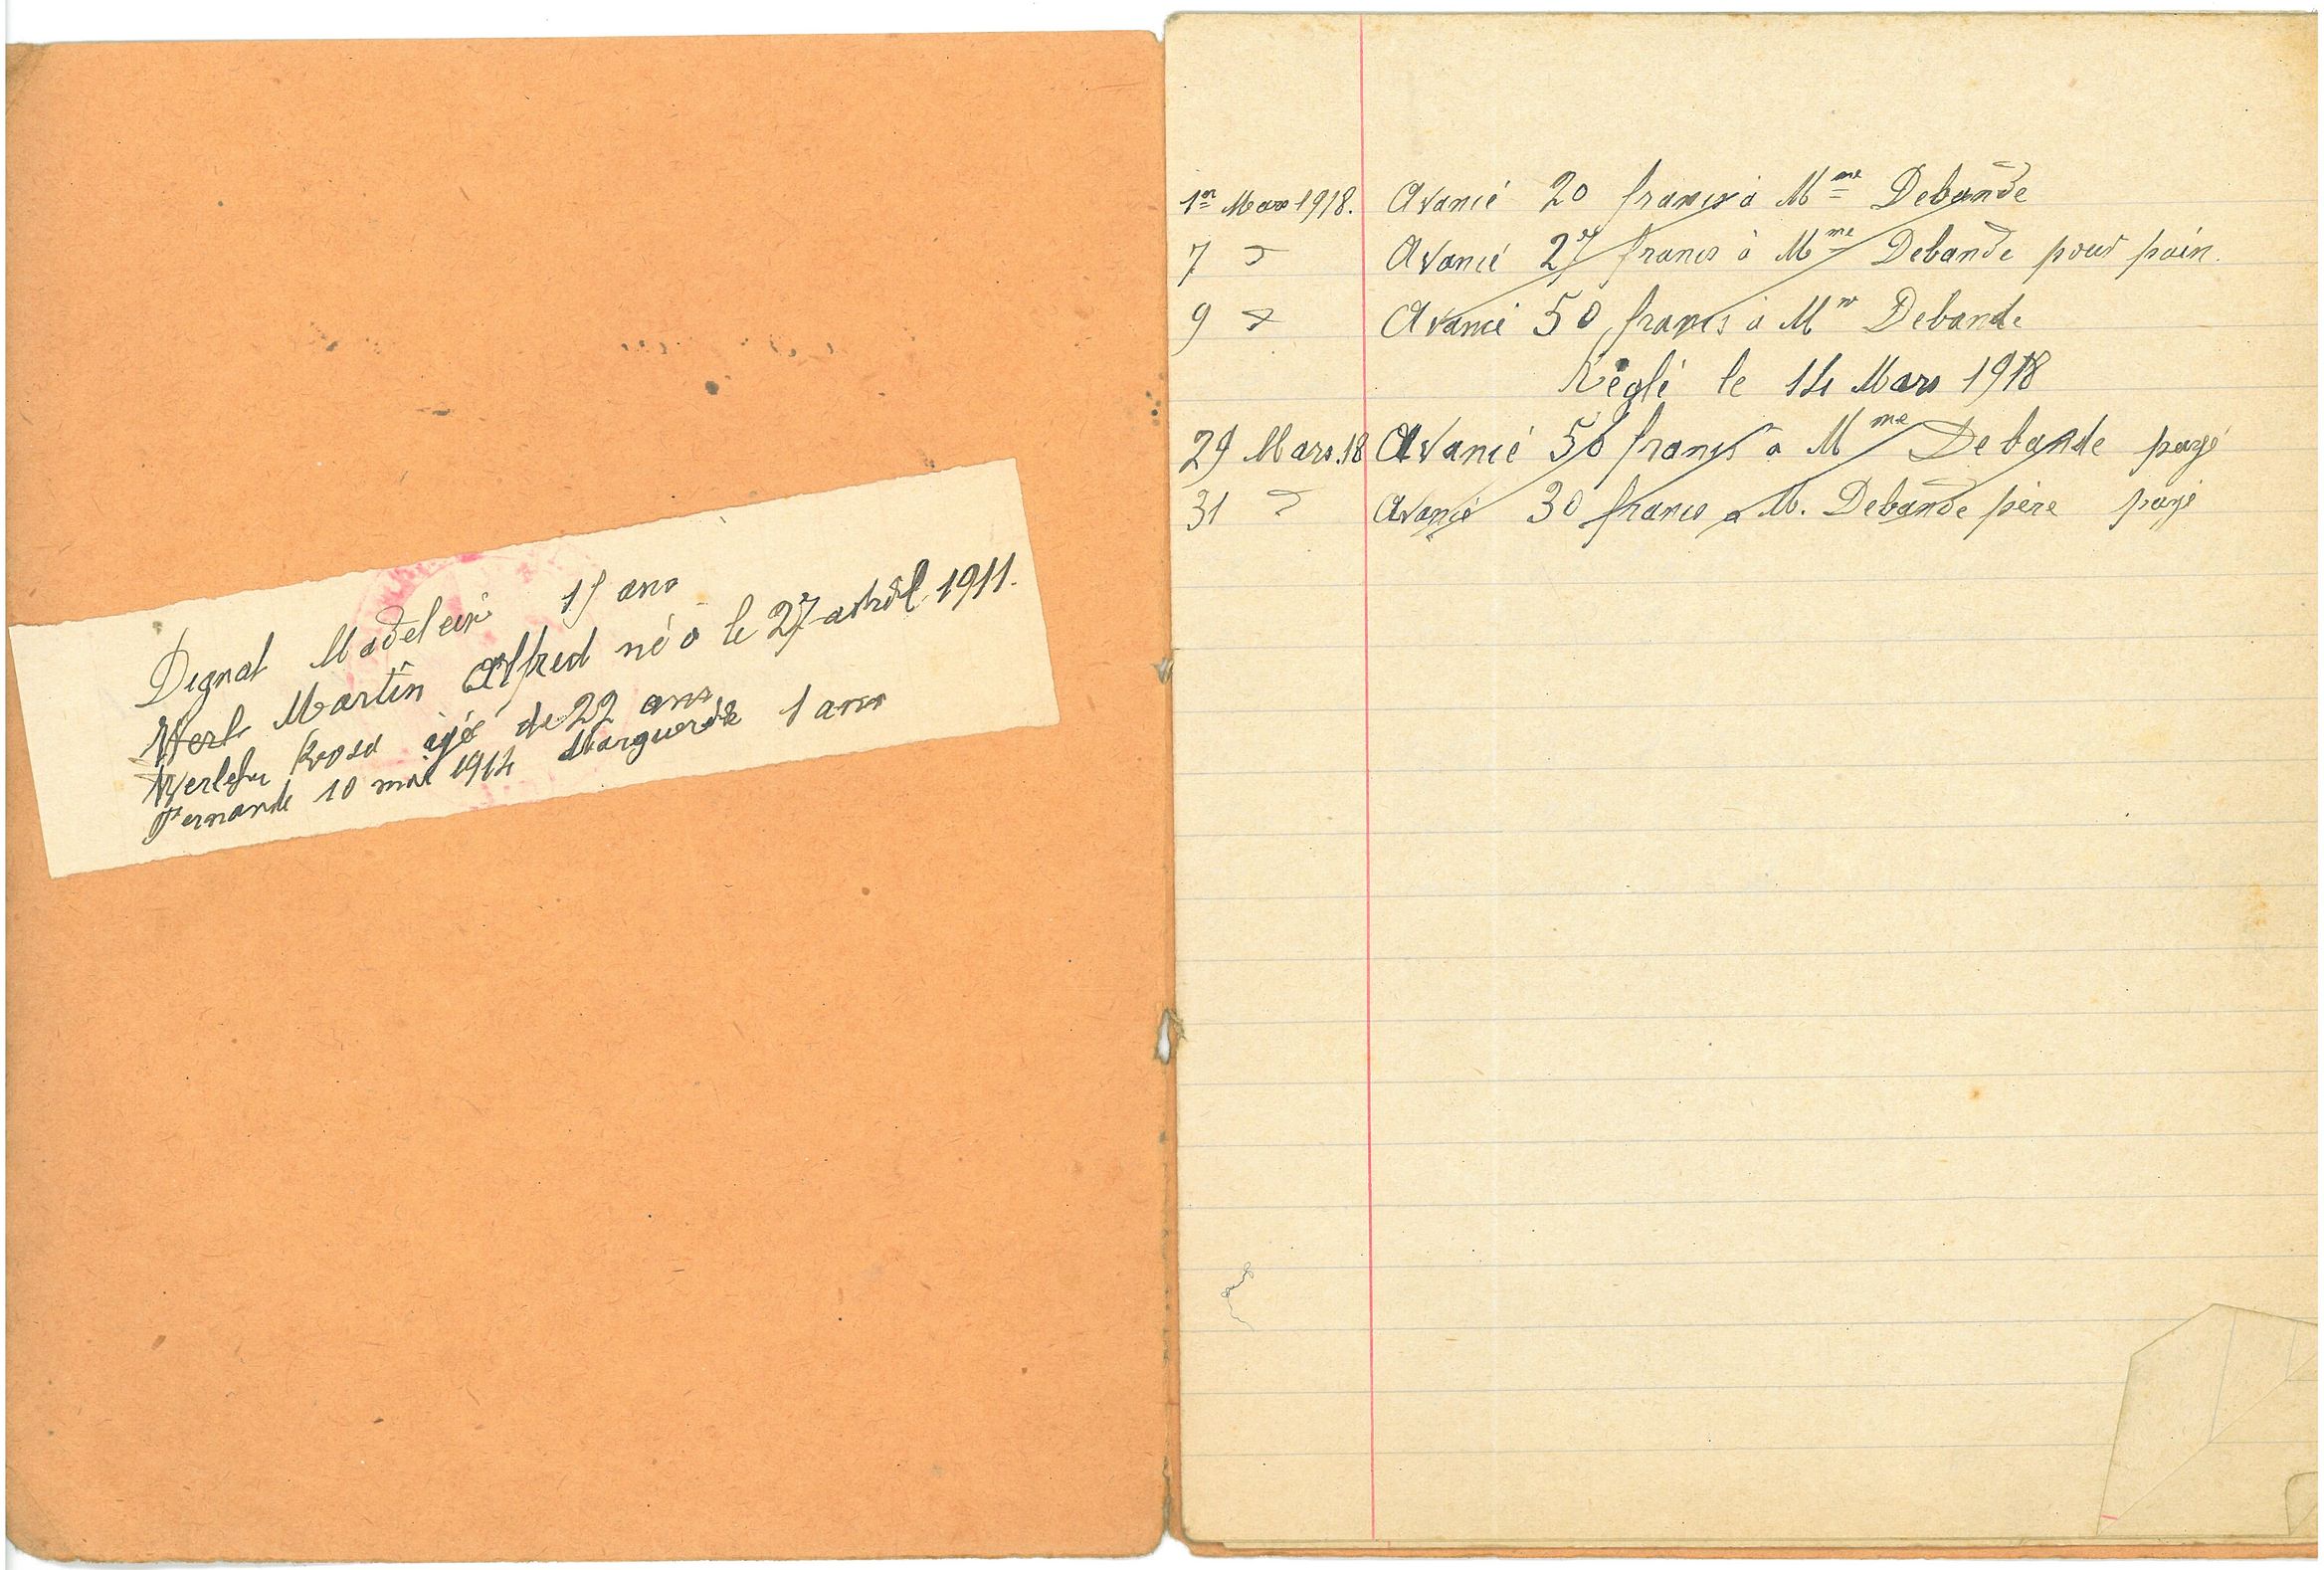 Dignat Madeleine 17 ans
Werl Martin Alfred né à le 27 avril 1911.
Rosa agée de 22 ans
Fernande 10 mai 1914 Marguerite 1 ans
1er Mars 1918. Avancé 20 francs à Mme Debande
7 " Avancé 27 francs à Mme Debande pour pain.
9 " Avancé 50 francs à Mr Debande
Réglé le 14 Mars 1918
29 Mars 18 Avancé 50 francs à Mme Debande payé
31 " Avancé 30 francs à M. Debande père payé